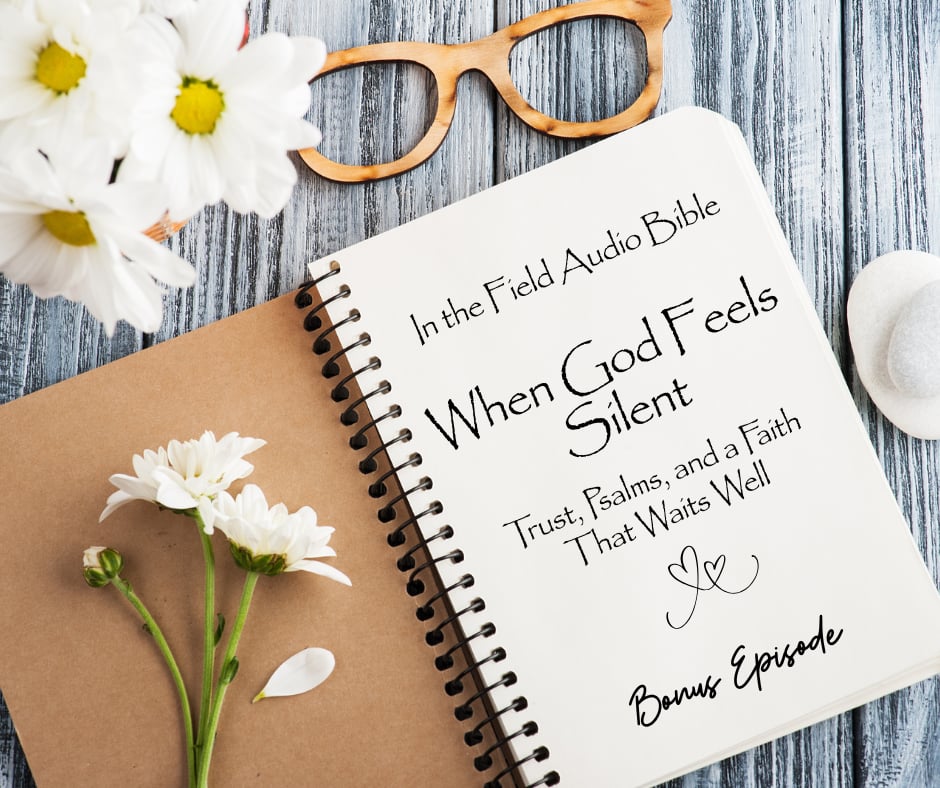 In the Field Audio Bible
When God Feels
Silent
Trust, Psalms, and a Faith
That Waits Well
Bonus Episode